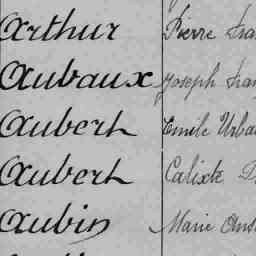 Arthur Pierre
Aubaux Joseph
Aubert Emile
Aubert Calixte
Aubin Marie